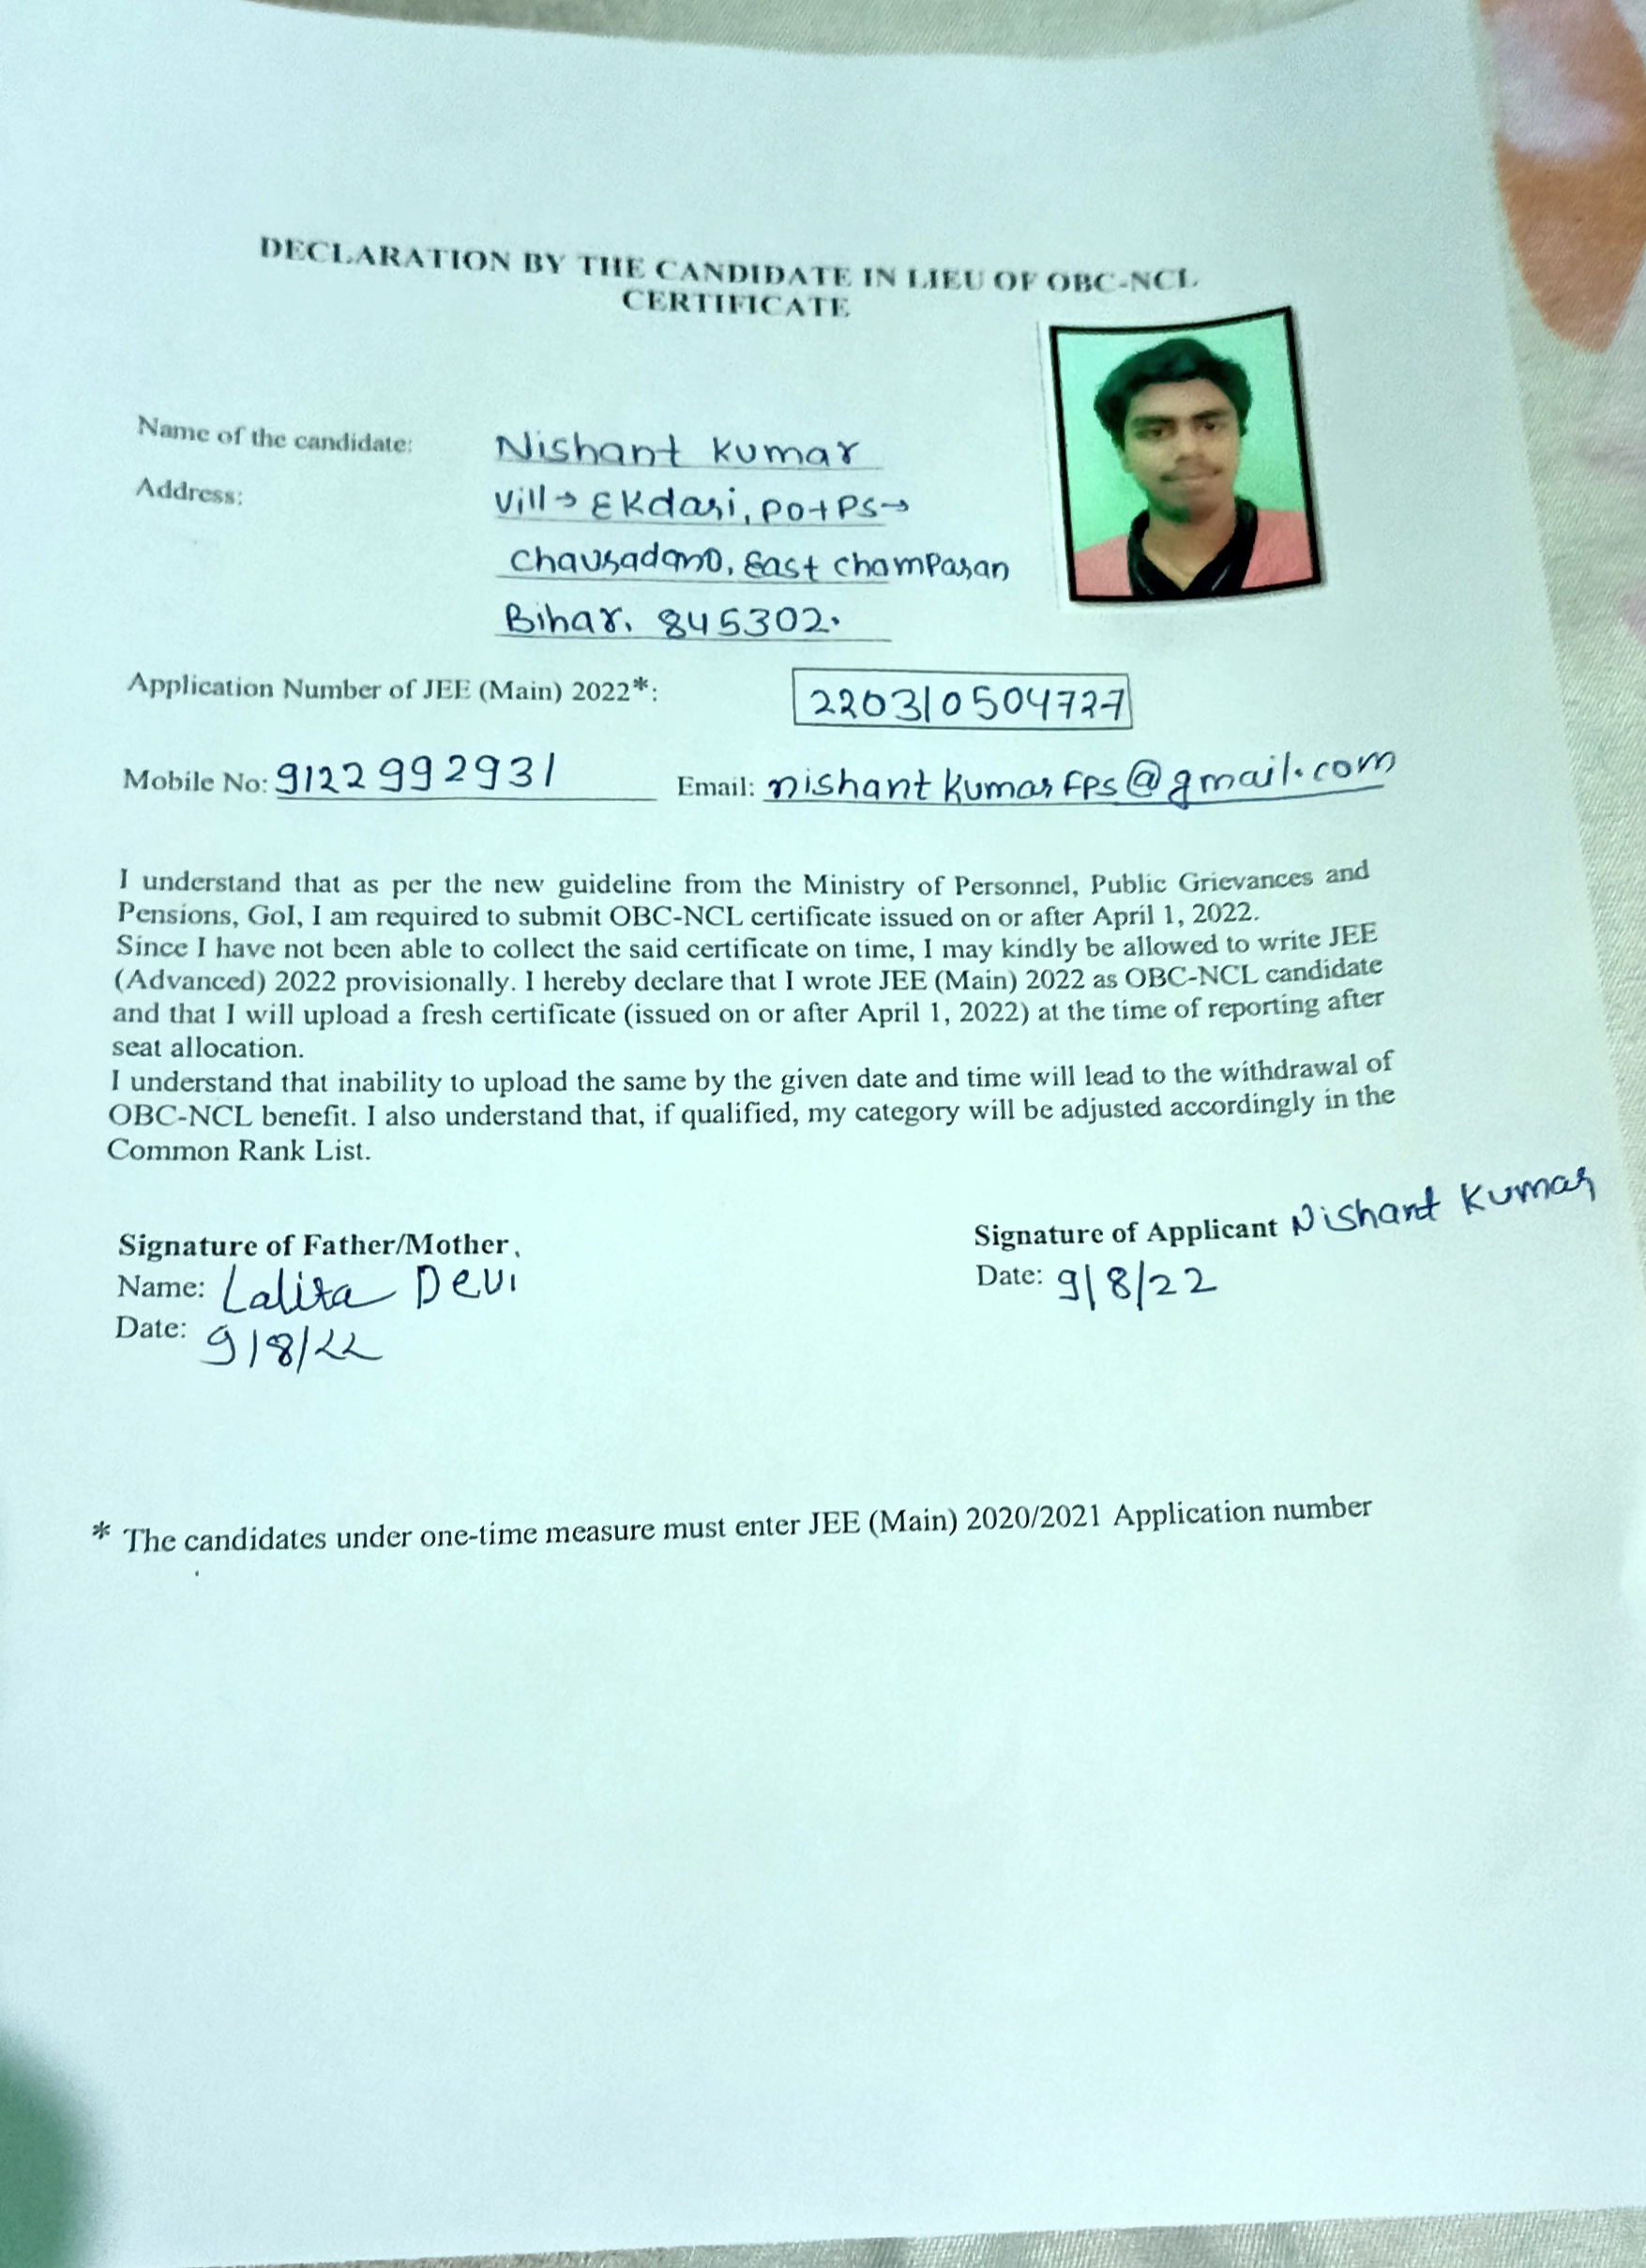 DECLARATION BY THE CANDIDATE IN LIEU OF OBC-NCL
CERTIFICATE
Name of the candidate: Nishant Kumar
Address: Vill→ Ekdari, PO+PS→
Chauradano, East Champaran
Bihar. 845302.
Application Number of JEE (Main) 2022*: 220310504727
Mobile No: 9122992931 Email: nishantkumarfps@gmail.com
I understand that as per the new guideline from the Ministry of Personnel, Public Grievances and
Pensions, GoI, I am required to submit OBC-NCL certificate issued on or after April 1, 2022.
Since I have not been able to collect the said certificate on time, I may kindly be allowed to write JEE
(Advanced) 2022 provisionally. I hereby declare that I wrote JEE (Main) 2022 as OBC-NCL candidate
and that I will upload a fresh certificate (issued on or after April 1, 2022) at the time of reporting after
seat allocation.
I understand that inability to upload the same by the given date and time will lead to the withdrawal of
OBC-NCL benefit. I also understand that, if qualified, my category will be adjusted accordingly in the
Common Rank List.
Signature of Father/Mother
Name: Lalita Devi
Date: 9/8/22
Signature of Applicant Nishant Kumar
Date: 9/8/22
* The candidates under one-time measure must enter JEE (Main) 2020/2021 Application number